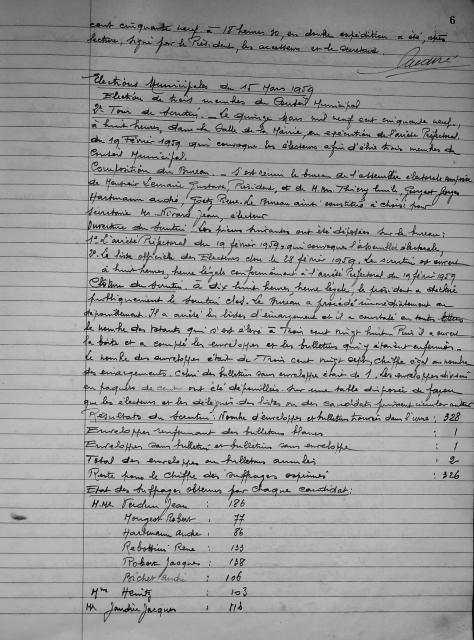 6
cent cinquante neuf à 18 heures 30, en double expédition a été, après
lecture, signé par le Président, les assesseurs et le secrétaire.
Elections Municipales du 15 Mars 1959
Election de trois membres du Conseil Municipal
2e Tour de Scrutin. - Le quinze mars mil neuf cent cinquante neuf,
à huit heures, dans la Salle de la Mairie, en exécution de l'arrêté Préfectoral
du 19 février 1959 qui convoque les électeurs afin d'élire trois membres du
Conseil Municipal.
Composition du Bureau. - S'est réuni le bureau de l'assemblée électorale composée
de Monsieur Lemarié Gustave, Président, et de M.M. Thierry Emile, Georges
Hartmann André, Pierre. Le Bureau ainsi constitué a choisi pour
secrétaire Mr Jean, électeur
Ouverture du Scrutin. Les pièces suivantes ont été déposées sur le bureau :
1° L'arrêté Préfectoral du 19 février 1959, qui convoque l'assemblée électorale,
2° La liste officielle des Electeurs close le 28 février 1959. Le scrutin est ouvert
à huit heures, heure légale conformément à l'arrêté Préfectoral du 19 février 1959
Clôture du Scrutin. à dix huit heures, heure légale, le président a déclaré
publiquement le scrutin clos. Le Bureau a procédé immédiatement au
dépouillement. Il a arrêté les listes d'émargement et il a constaté en toutes lettres
le nombre des votants qui s'est élevé à Trois cent vingt huit. Puis il a ouvert
la boîte et a compté les enveloppes et les bulletins qui y étaient enfermés.
Le nombre des enveloppes était de Trois cent vingt sept, chiffre égal au nombre
des émargements. Celui du bulletin sans enveloppe était de 1. Les enveloppes divisées
en paquets de cent ont été dépouillées sur une table disposée de façon
que les électeurs et les délégués des listes ou des candidats puissent circuler autour
Résultats du Scrutin : Nombre d'enveloppes et bulletins trouvés dans l'urne : 328
Enveloppes renfermant des bulletins blancs : 1
Enveloppes sans bulletin et bulletins sans enveloppe : 1
Total des enveloppes ou bulletins annulés : 2
Reste pour le chiffre des suffrages exprimés : 326
Etat des suffrages obtenus par chaque candidat :
M.Mr Verdun Jean : 186
Mougeot Robert : 77
Hartmann André : 86
Rabottini René : 133
Robert Jacques : 138
Bichet André : 106
Mme Henitz : 103
Mr Jacques :